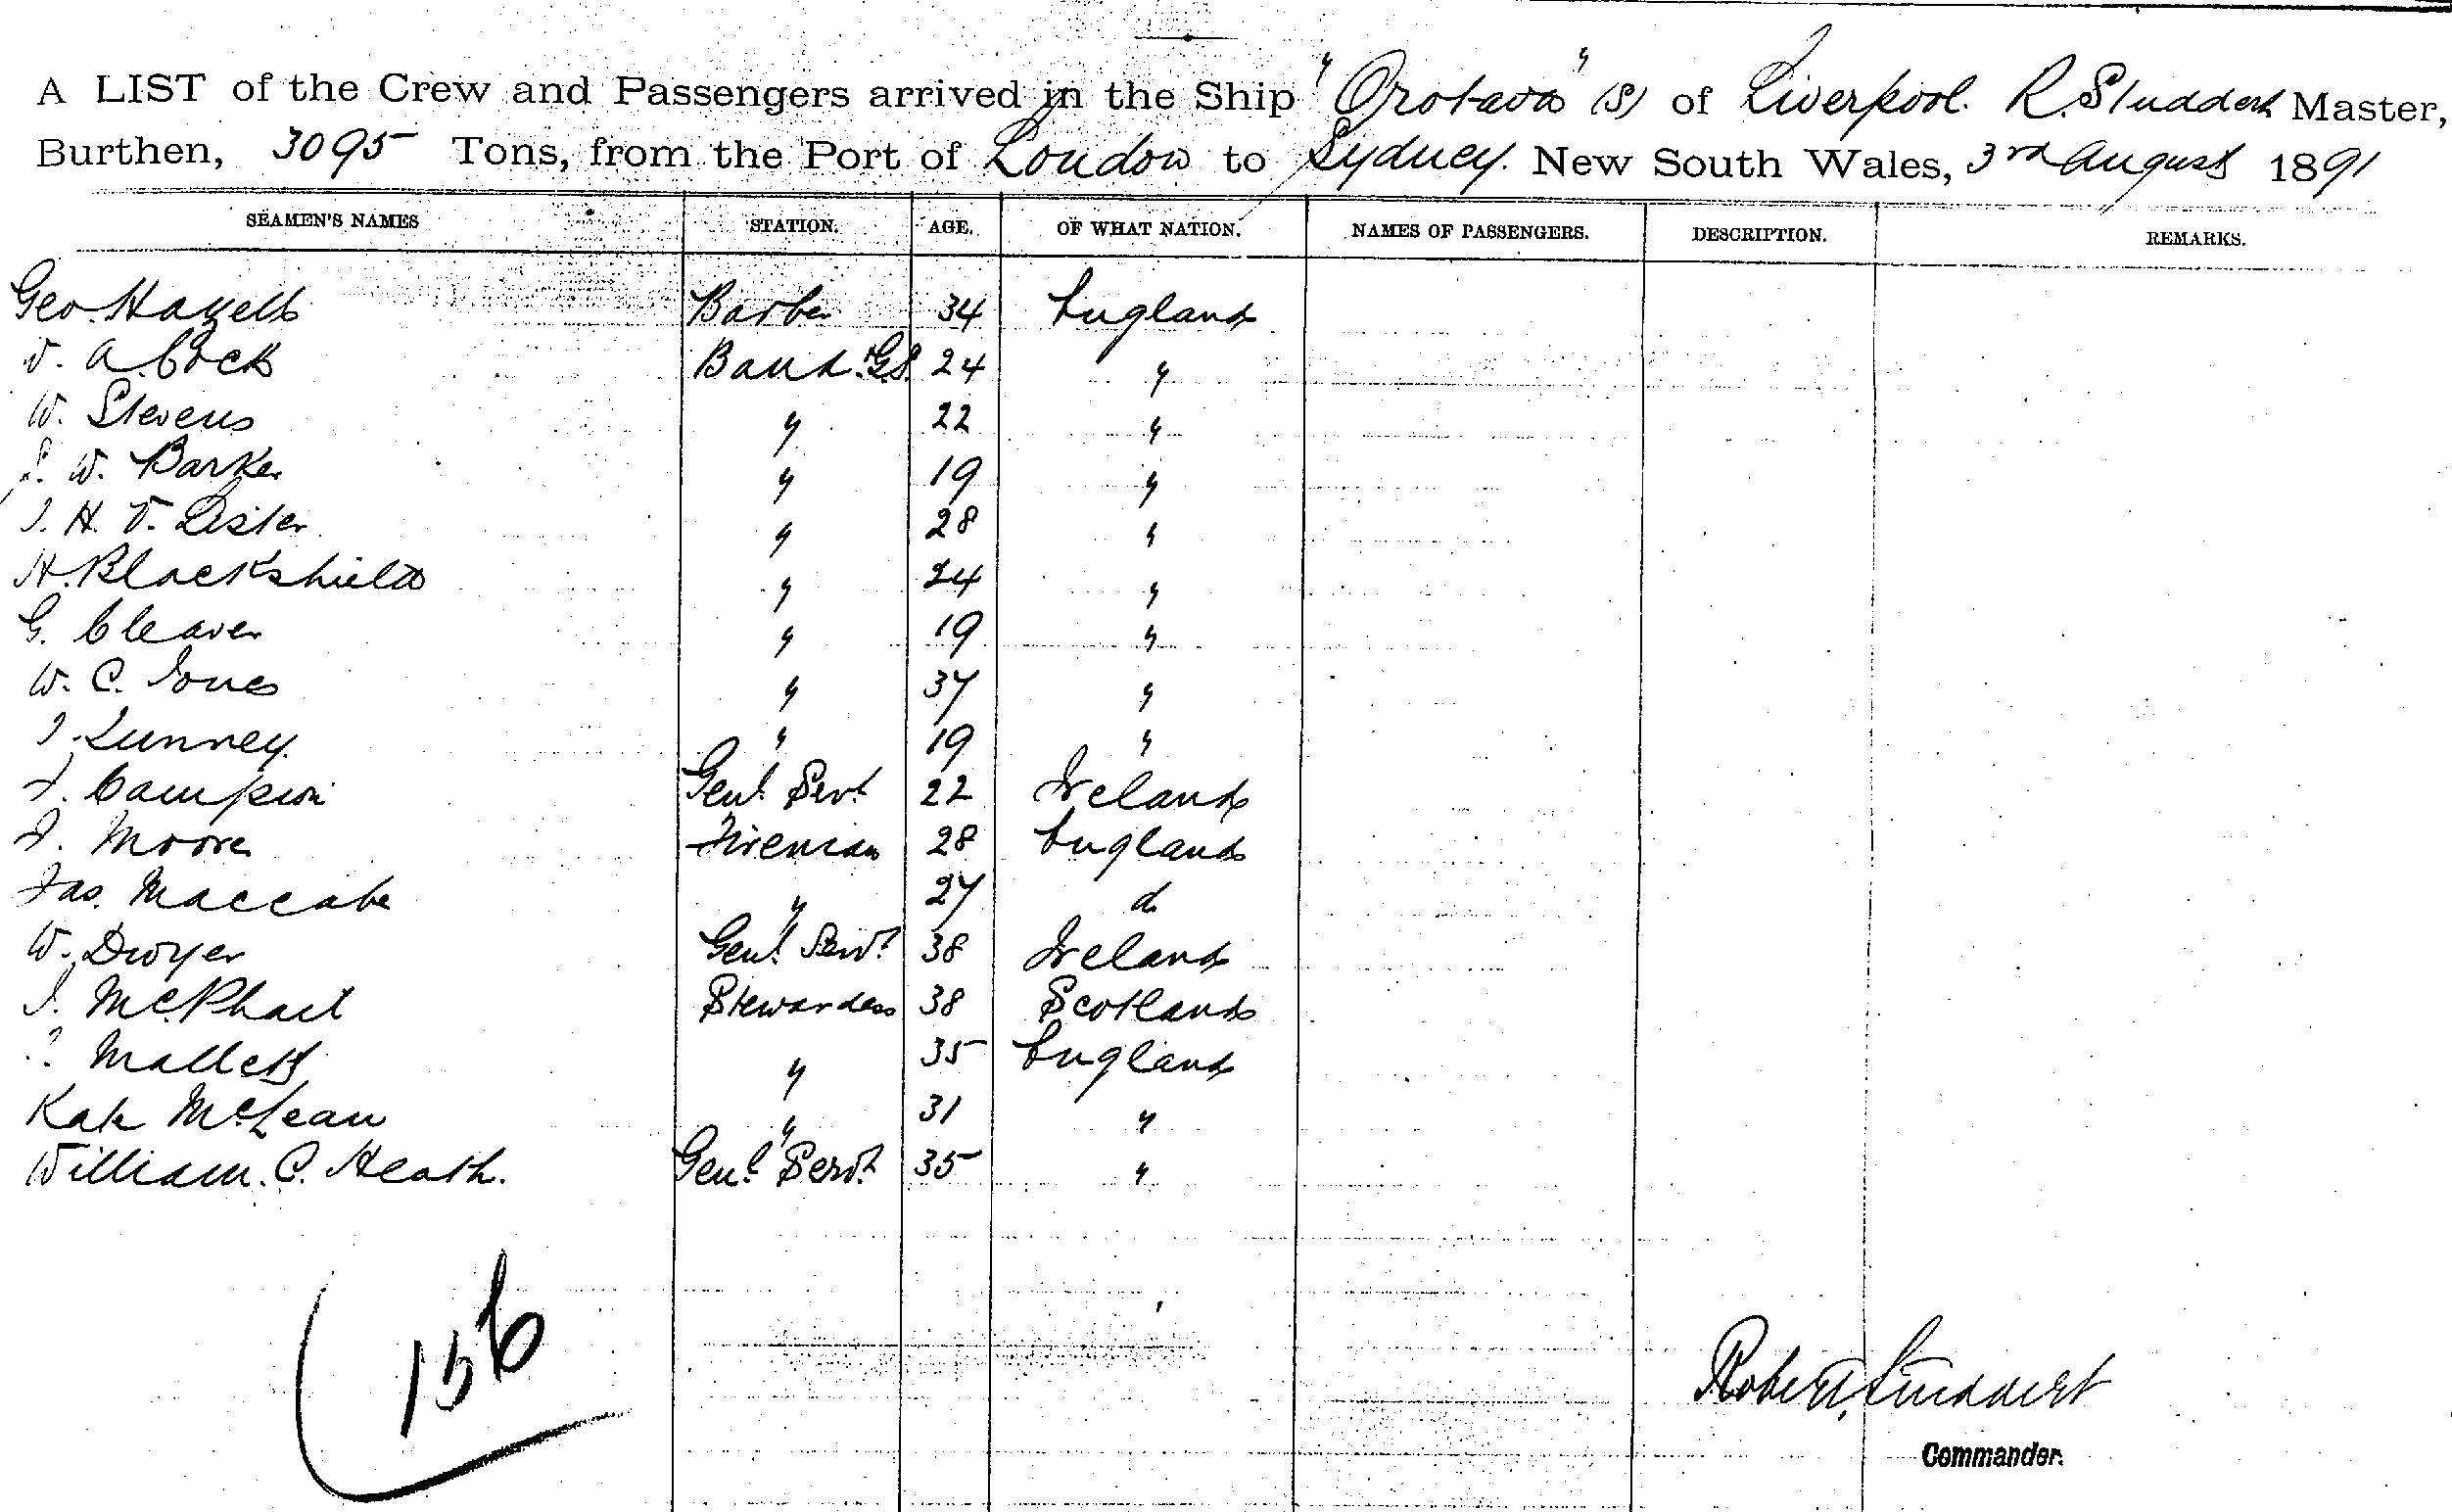 A LIST of the Crew and Passengers arrived in the Ship "Orotava" (S) of Liverpool. R. Studdert Master,
Burthen, 3095 Tons, from the Port of London to Sydney. New South Wales, 3rd August 1891
SEAMEN'S NAMES STATION. AGE. OF WHAT NATION. NAMES OF PASSENGERS. DESCRIPTION. REMARKS.
Geo. Barber 34 England
A. Cock Band. G.S. 24 "
W. Stevens " 22 "
W. Barker " 19 "
J. H. T. Lister " 28 "
H. Blackshield " 24 "
G. Cleaver " 19 "
W. C. Jones " 37 "
J. Lunney. " 19 "
J. Campion Genl. Servt. 22 Ireland
J. Moore Fireman 28 England
Jas. Maccabe " 27 do
W. Dwyer Genl. Servt. 38 Ireland
J. McPhail Stewardess 38 Scotland
Mallett " 35 England
Kate McLean " 31 "
William. C. Heath. Genl. Servt. 35 "
156
Robert Studdert
Commander.